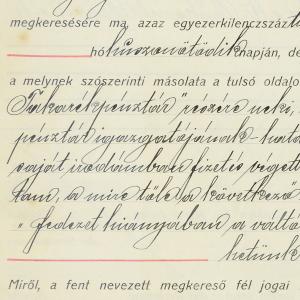 megkeresésére ma, azaz egyezerkilenczszáz
hó huszonötödik napján, de
a melynek szószerinti másolata a tulsó oldalo
Takarékpénztár" részére neki,
pénztár igazgatójának hata
saját irodámban fizetés végett
tam, a mire tőle a következő
„fedezet hiányában a váltó
hetünk
Miről, a fent nevezett megkereső fél jogai